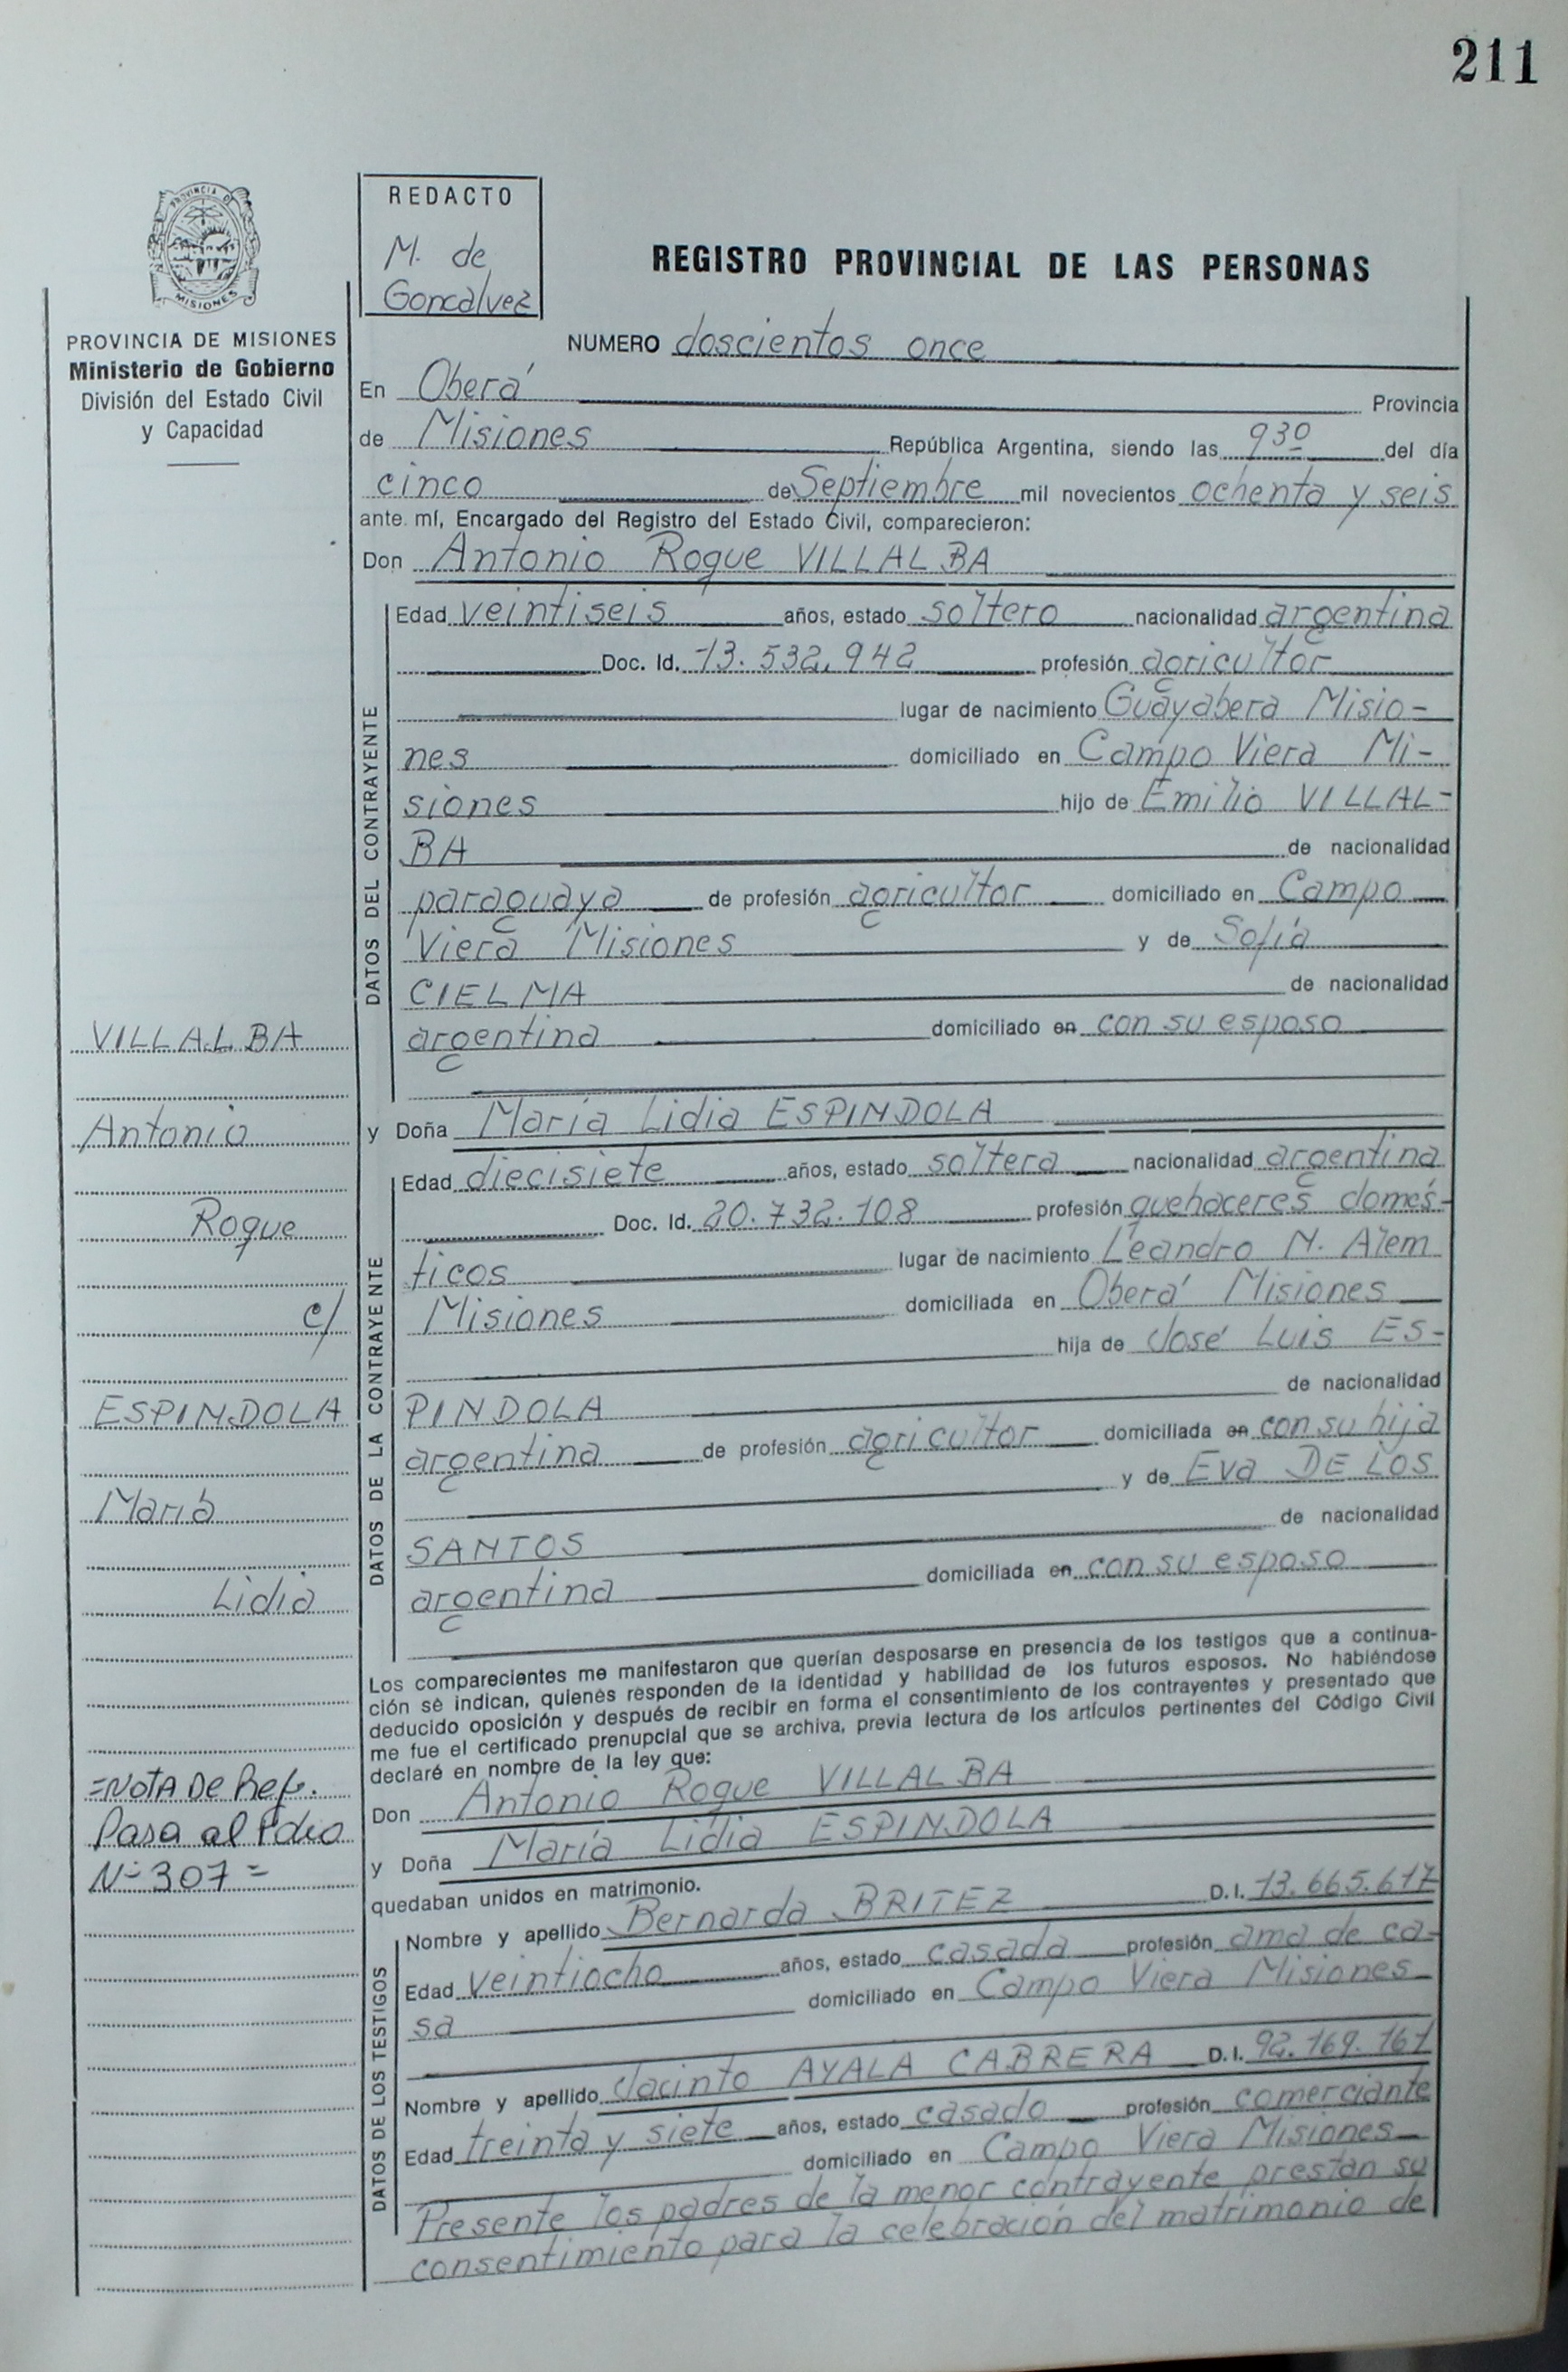 211
PROVINCIA DE
MISIONES
REDACTO
M. de
Goncalvez
REGISTRO PROVINCIAL DE LAS PERSONAS
PROVINCIA DE MISIONES
Ministerio de Gobierno
División del Estado Civil
y Capacidad
NUMERO doscientos once
En Oberá Provincia
de Misiones República Argentina, siendo las 9 30 del día
cinco de Septiembre mil novecientos ochenta y seis
ante mí, Encargado del Registro del Estado Civil, comparecieron:
Don Antonio Roque VILLALBA
DATOS DEL CONTRAYENTE
Edad veintiseis años, estado soltero nacionalidad argentina
Doc. Id. 13.532.942 profesión agricultor
lugar de nacimiento Guayabera Misio-
nes domiciliado en Campo Viera Mi-
siones hijo de Emilio VILLAL-
BA de nacionalidad
paraguaya de profesión agricultor domiciliado en Campo
Viera Misiones y de Sofía
CIELMA de nacionalidad
argentina domiciliado en con su esposo
y Doña María Lidia ESPINDOLA
DATOS DE LA CONTRAYENTE
Edad diecisiete años, estado soltera nacionalidad argentina
Doc. Id. 20.732.108 profesión quehaceres domés-
ticos lugar de nacimiento Leandro N. Alem
Misiones domiciliada en Oberá Misiones
hija de José Luis ES-
PINDOLA de nacionalidad
argentina de profesión agricultor domiciliada en con su hija
y de Eva DE LOS
SANTOS de nacionalidad
argentina domiciliada en con su esposo
Los comparecientes me manifestaron que querían desposarse en presencia de los testigos que a continua-
ción se indican, quienes responden de la identidad y habilidad de los futuros esposos. No habiéndose
deducido oposición y después de recibir en forma el consentimiento de los contrayentes y presentado que
me fue el certificado prenupcial que se archiva, previa lectura de los artículos pertinentes del Código Civil
declaré en nombre de la ley que:
Don Antonio Roque VILLALBA
y Doña María Lidia ESPINDOLA
quedaban unidos en matrimonio.
DATOS DE LOS TESTIGOS
Nombre y apellido Bernarda BRITEZ D.I. 13.665.617
Edad veintiocho años, estado casada profesión ama de ca-
sa domiciliado en Campo Viera Misiones
Nombre y apellido Jacinto AYALA CABRERA D.I. 92.169.161
Edad treinta y siete años, estado casado profesión comerciante
domiciliado en Campo Viera Misiones
Presente los padres de la menor contrayente prestan su
consentimiento para la celebración del matrimonio de
VILLALBA
Antonio
Roque
c/
ESPINDOLA
María
Lidia
=NOTA De Ref.
Pasa al Folio
Nº 307=